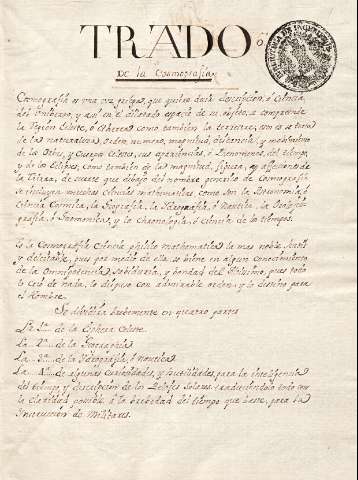 TRADO
de la Cosmografia
Cosmografia es una voz griega, que quiere decir descripcion, ó Ciencia
del Universo, y assi en el dilatado espacio de su sujeto, se comprende
la Region Celeste, ó Etherea como tambien la terrestre, son se trata
de las naturalezas, orden, numero, magnitud, distancia, y movimientos
de los Orbes, y Cuerpos Celestes, sus apariencias, ó Fenomenos del tiempo,
y de los Eclipses, como tambien de las magnitud, figura, y afecciones de
la Tierra, de suerte que debajo del nombre generico de Cosmografia
se incluyen muchas Ciencias mathematicas, como son la Astronomia, ó
Ciencia la Geografia, la Hidrografia, ó Nautica, la
grafia, ó y la Chronologia, ó Ciencia de los tiempos.
Es la Cosmografia Ciencia phisico mathematica la mas noble,
y delectable, pues por medio de ella se viene en algun conocimiento
de la Omnipotencia, Sabiduria, y bondad del Altisimo, pues todo
lo crió de nada, lo dispuso con admirable orden, y lo destino para
el hombre.
Se dividirá brebemente en quatro partes
La 1a. de la Esphera Celeste.
La 2a. de la Geographia
La 3a. de la Hidrografia, ó nautica
La 4a. de algunas curiosidades, y utilidades, para la inteligencia
del tiempo y descripcion de los Reloxes Solares, traduciendolo todo con
la claridad posible á la brebedad del tiempo que baste, para la
Instruccion de Militares.